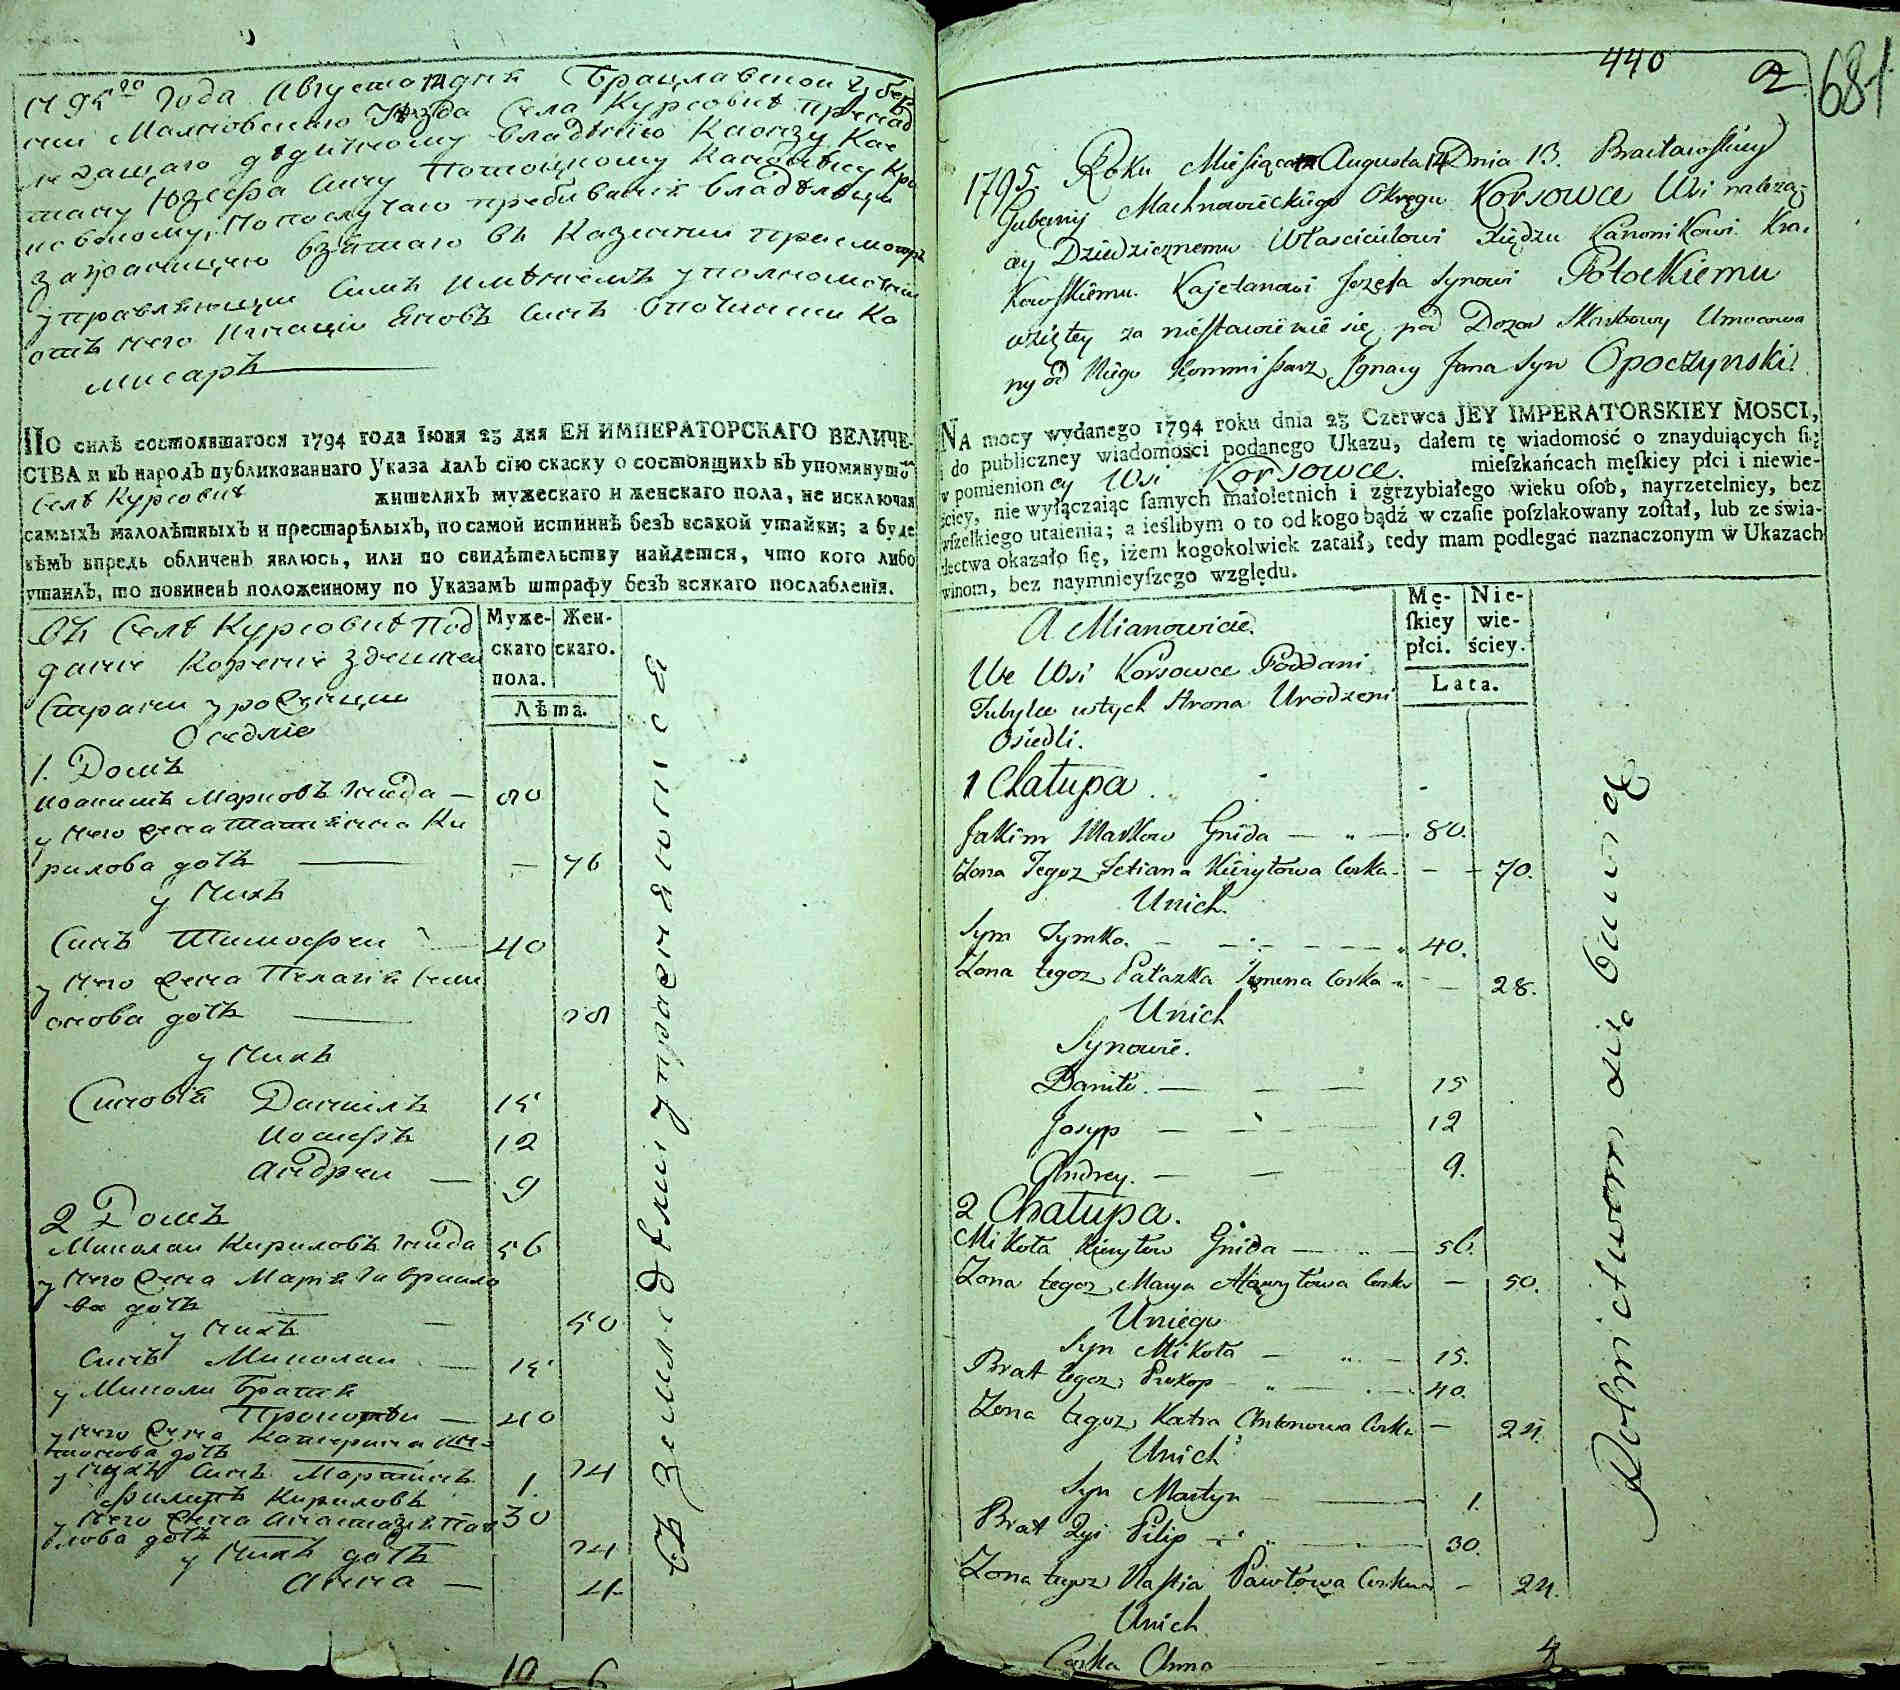 1795го года Августа 12 дня Брацлавской губер
нии Махновского Уезда Села Курсовки принад
лежащаго дѣдичному владѣнию Ксюнзу Кае
тану Юзефа сину Потоцкому Канонику Кра
ковскому, По послучаю пребывания владѣльца
заграницею взятаго въ Казенний присмотръ
управляющий симъ имѣниемъ уполномоченний
отъ него Игнаций Яновъ синъ Опочински Ко
мисаръ
ПО силѣ состоявшагося 1794 года Іюня 23 дня ЕЯ ИМПЕРАТОРСКАГО ВЕЛИЧЕ-
СТВА и въ народъ публикованнаго Указа далъ сїю скаску о состоящихъ въ упомянутомъ
Селѣ Курсовкѣ жителяхъ мужескаго и женскаго пола, не исключая
самыхъ малолѣтныхъ и престарѣлыхъ, по самой истиннѣ безъ всякой утайки; а буде
кѣмъ впредь обличенъ явлюсь, или по свидѣтельству найдется, что кого либо
утаилъ, то повиненъ положенному по Указамъ штрафу безъ всякаго послабленїя.
Въ Селѣ Курсовкѣ Под
данние Коренние здешнеи
Страни уроженци
Оседлие
Муже-
скаго
пола.
Жен-
скаго.
Лѣта.
1. Домъ
Иоакимъ Марковъ Гнида — 80
у него жена Татиянна Ки
рилова дочь — — 76
у нихъ
Синъ Тимофеи — 40
у него жена Пелагия Сем
онова дочь — 28
у нихъ
Синовия Даниилъ 15
Иосифъ 12
Андреи — 9
2 Домъ
Николаи Кириловъ Гнида 56
у него жена Мария Гаврилло
ва дочь
у нихъ — 50
Синъ Николаи — 15
у Николи Братя
Прокопѣи — 40
у него жена Катерина Ан-
тонова дочь 24
у нихъ Синъ Мартинъ 1.
Филипъ Кириловъ 30
у него жена Анастазия Пав
лова дочь 24
у нихъ дочь
Анна — 4
10 6
Въ земледѣлии упражняются
440
2
681
1795 Roku Miesiąca Augusta 12 Dnia 13. Bracławskiey
Gubernij Machnowieckiego Okręgu Korsowce Wsi należą-
cey Dziedzicznemu Włascicielowi Xiędzu Kanonikowi Kra-
kowskiemu. Kajetanowi Jozefa Synowi Potockiemu
wziętey za niestawienie się pod Dozor Skarbowy Umocowa
ny od Niego Kommissarz Ignacy Jana Syn Opoczynski.
NA mocy wydanego 1794 roku dnia 23 Czerwca JEY IMPERATORSKIEY MOSCI,
i do publiczney wiadomości podanego Ukazu, dałem tę wiadomość o znayduiących ſię
w pomienioney Wsi Korsowce. mieſzkańcach męſkiey płci i niewie-
ściey, nie wyłączaiąc ſamych małoletnich i zgrzybiałego wieku oſob, nayrzetelniey, bez
wſzelkiego utaienia; a ieślibym o to od kogo bądź w czaſie poſzlakowany zoſtał, lub ze świa-
dectwa okazało ſię, iżem kogokolwiek zataił, tedy mam podlegać naznaczonym w Ukazach
winom, bez naymnieyſzego względu.
A Mianowicie.
We Wsi Korsowce Poddani
Tubylce wtych Strona Urodzeni
Osiedli.
Mę-
ſkiey
płci.
Nie-
wie-
ściey.
Lata.
1 Chałupa
Jakim Markow Gnida — 80.
Zona Tegoz Tetiana Kiryłowa Corka — 70.
Unich.
Syn Tymko. — 40.
Zona tegoz Pałazka Semena Corka — 28.
Unich
Synowie.
Daniło. — 15
Josyp — 12
Andrey. — 9.
2 Chałupa.
Mikoła Kiryłow Gnida — 56.
Zona tegoz Marya Hawryłowa Corka — 50.
Uniego
Syn Mikoła — 15.
Brat tegoz Prokop — 40.
Zona tegoz Katra Antonowa Corka — 24.
Unich
Syn Martyn — 1.
Brat 2gi Pilip — 30.
Zona tegoz Nastia Pawłowa Corka — 24.
Unich
Corka Anna 4
Rolnictwem się bawią